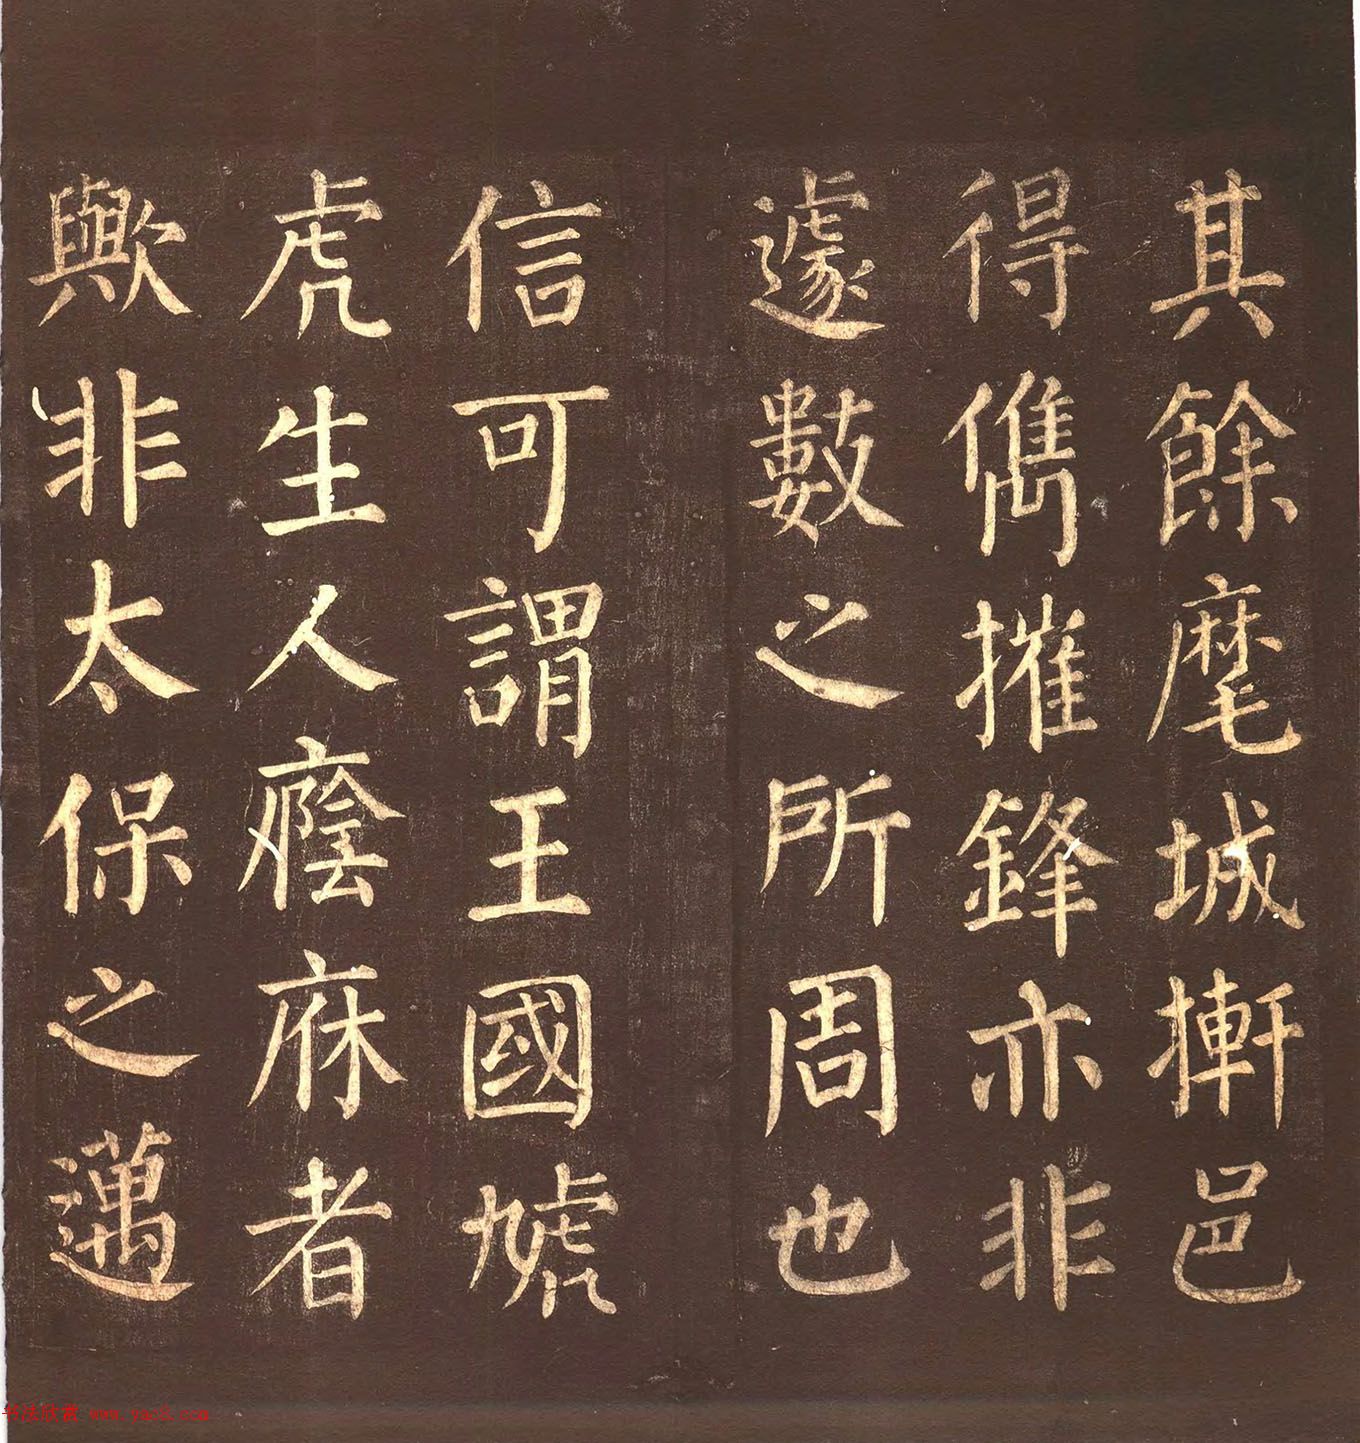 其餘麾城摲邑
得儁摧鋒亦非
遽數之所周也
信可謂王國虓
虎生人癊庥者
歟非太保之邁
书法欣赏 www.yac8.com